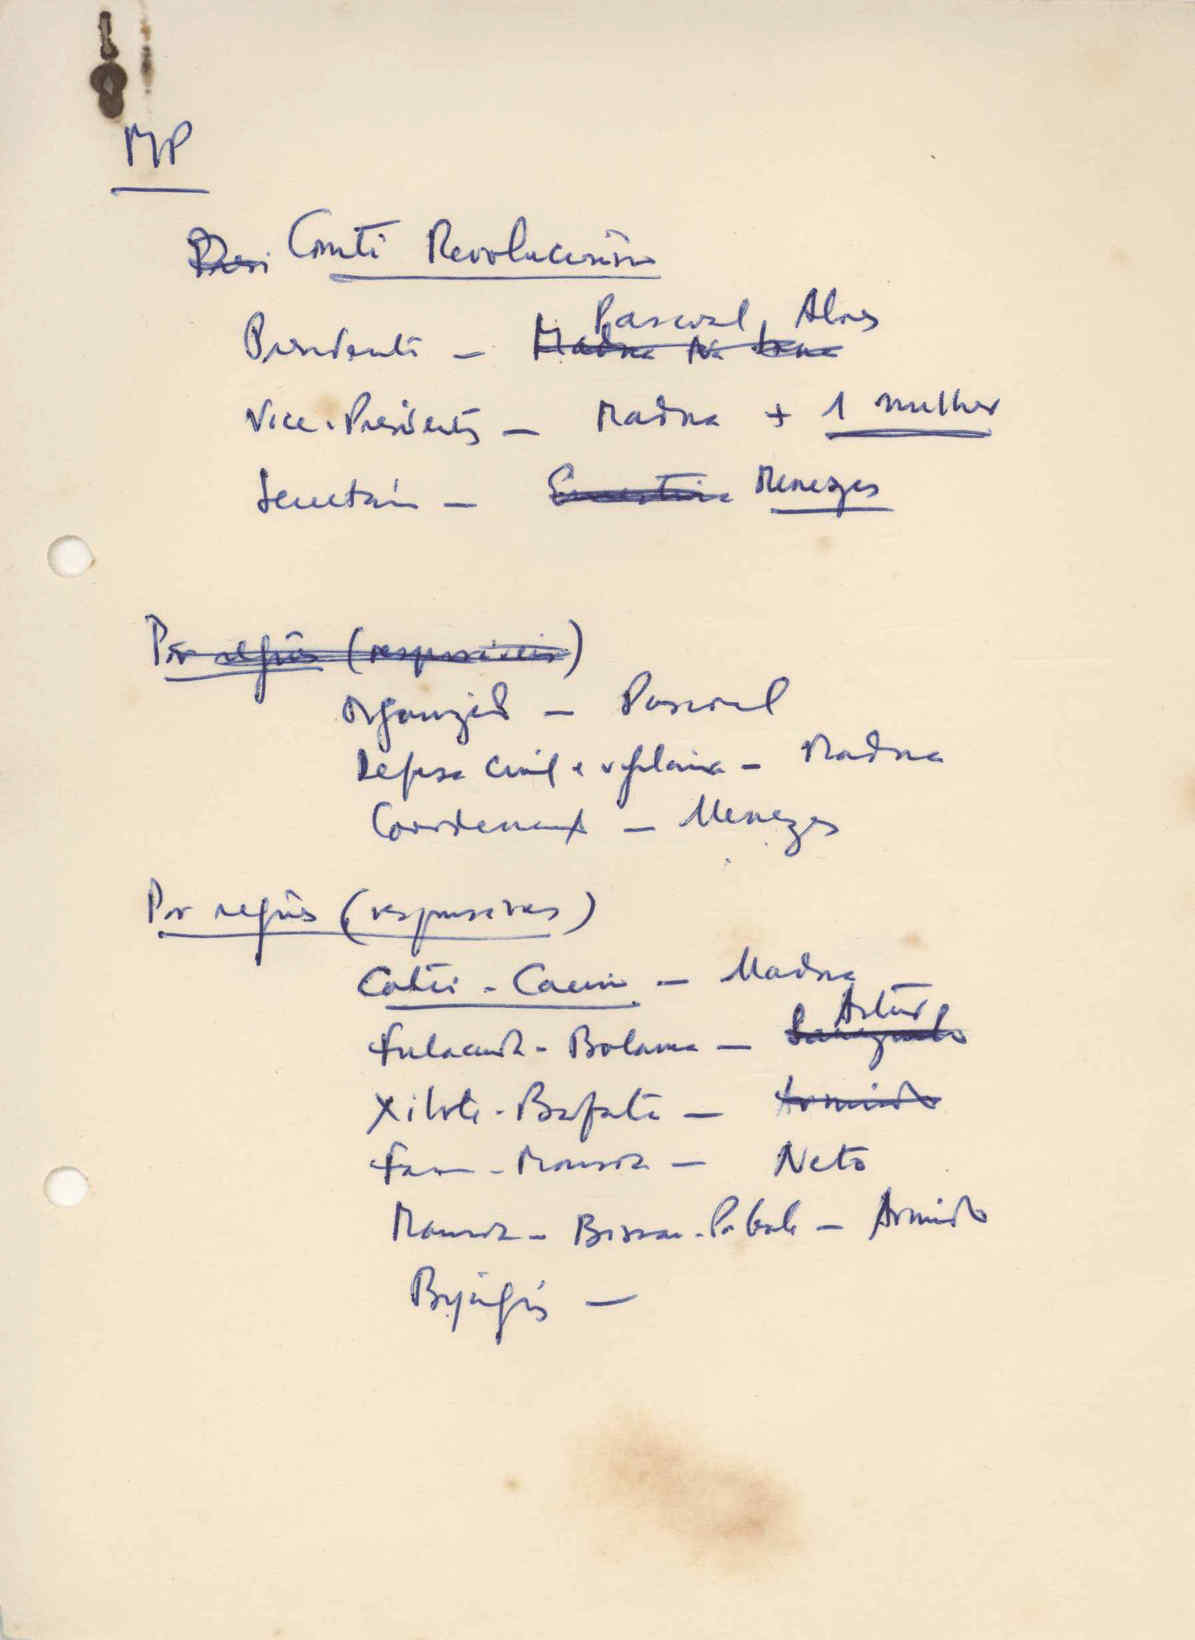 MP
Comité Revolucionário
Pascoal Alves
Presidente – Madna Na
Vice-Presidentes – Madna + 1 mulher
Secretário – Ernestina Menezes
Por regiões (responsáveis)
Organização – Pascoal
Defesa civil e vigilância – Madna
Coordenação – Menezes
Por regiões (responsáveis)
Catió - Cacine – Madna
Artur
Fulacunda - Bolama –
Xitole - Bafatá – Armindo
Farim - Mansoa – Neto
Mansoa - Bissau - – Armindo
Bijagós –